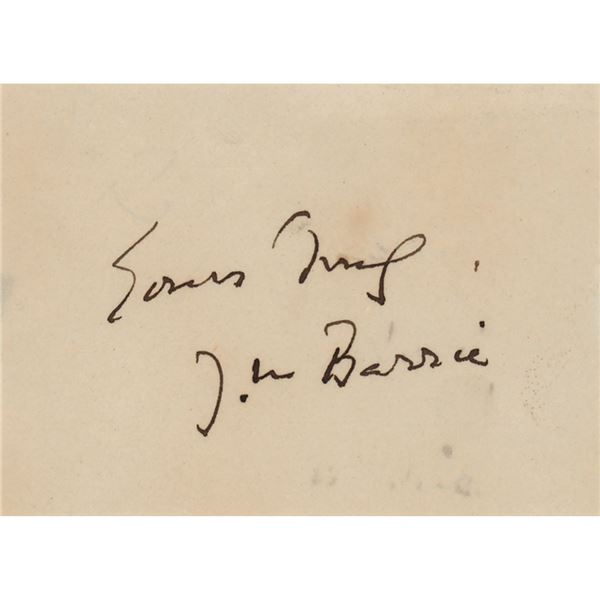 Yours truly.
J. M Barrie